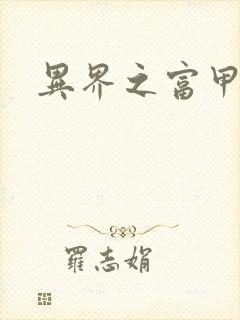 異界之富甲
羅志娟